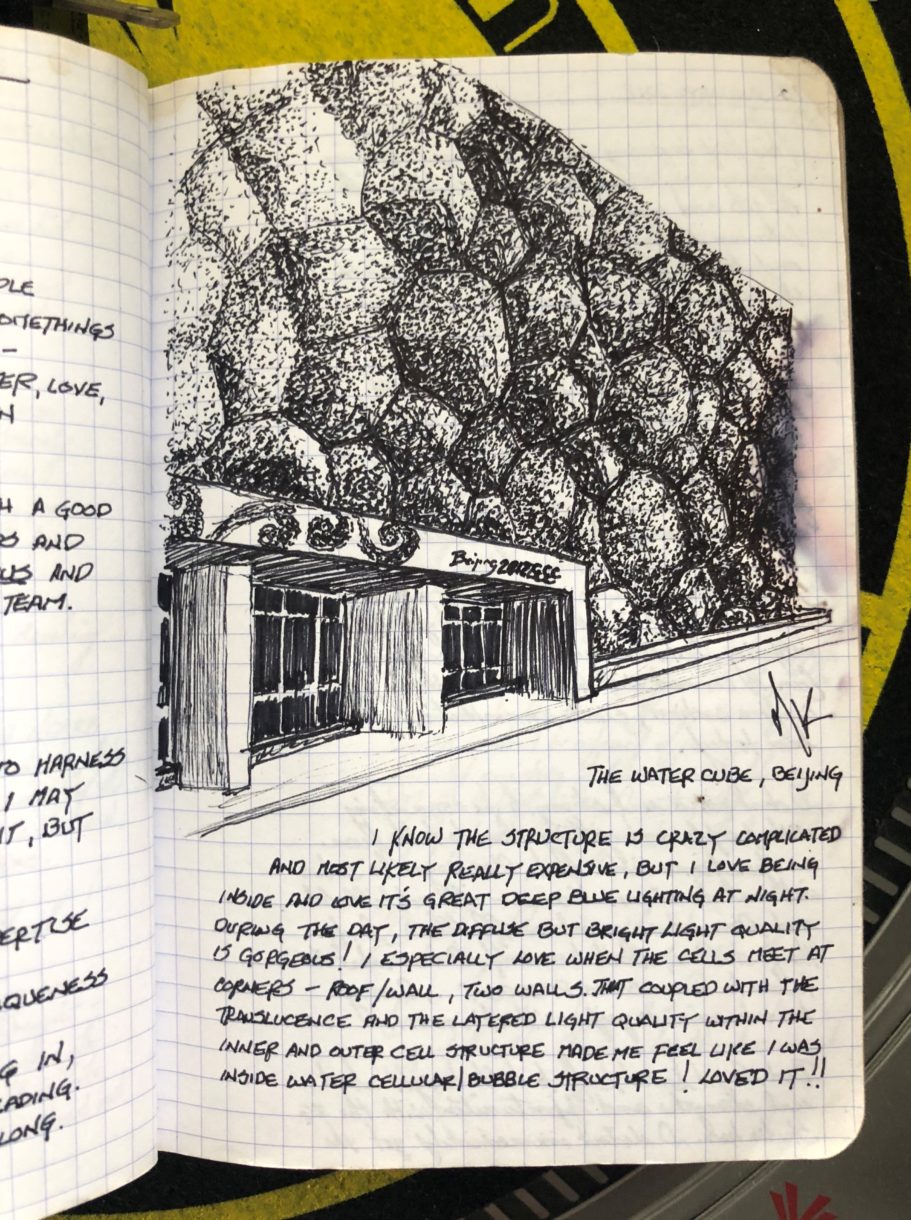 OMETHINGS
–
ER, LOVE,
N
H A GOOD
AND
AND
TEAM.
TO HARNESS
I MAY
IT, BUT
ERTISE
AQUENESS
G IN,
EADING.
LONG.
Beijing
THE WATER CUBE, BEIJING
I KNOW THE STRUCTURE IS CRAZY COMPLICATED
AND MOST LIKELY REALLY EXPENSIVE, BUT I LOVE BEING
INSIDE AND LOVE IT'S GREAT DEEP BLUE LIGHTING AT NIGHT.
DURING THE DAY, THE DIFFUSE BUT BRIGHT LIGHT QUALITY
IS GORGEOUS! I ESPECIALLY LOVE WHEN THE CELLS MEET AT
CORNERS – ROOF/WALL, TWO WALLS. THAT COUPLED WITH THE
TRANSLUCENCE AND THE LATERED LIGHT QUALITY WITHIN THE
INNER AND OUTER CELL STRUCTURE MADE ME FEEL LIKE I WAS
INSIDE WATER CELLULAR/BUBBLE STRUCTURE! LOVED IT!!